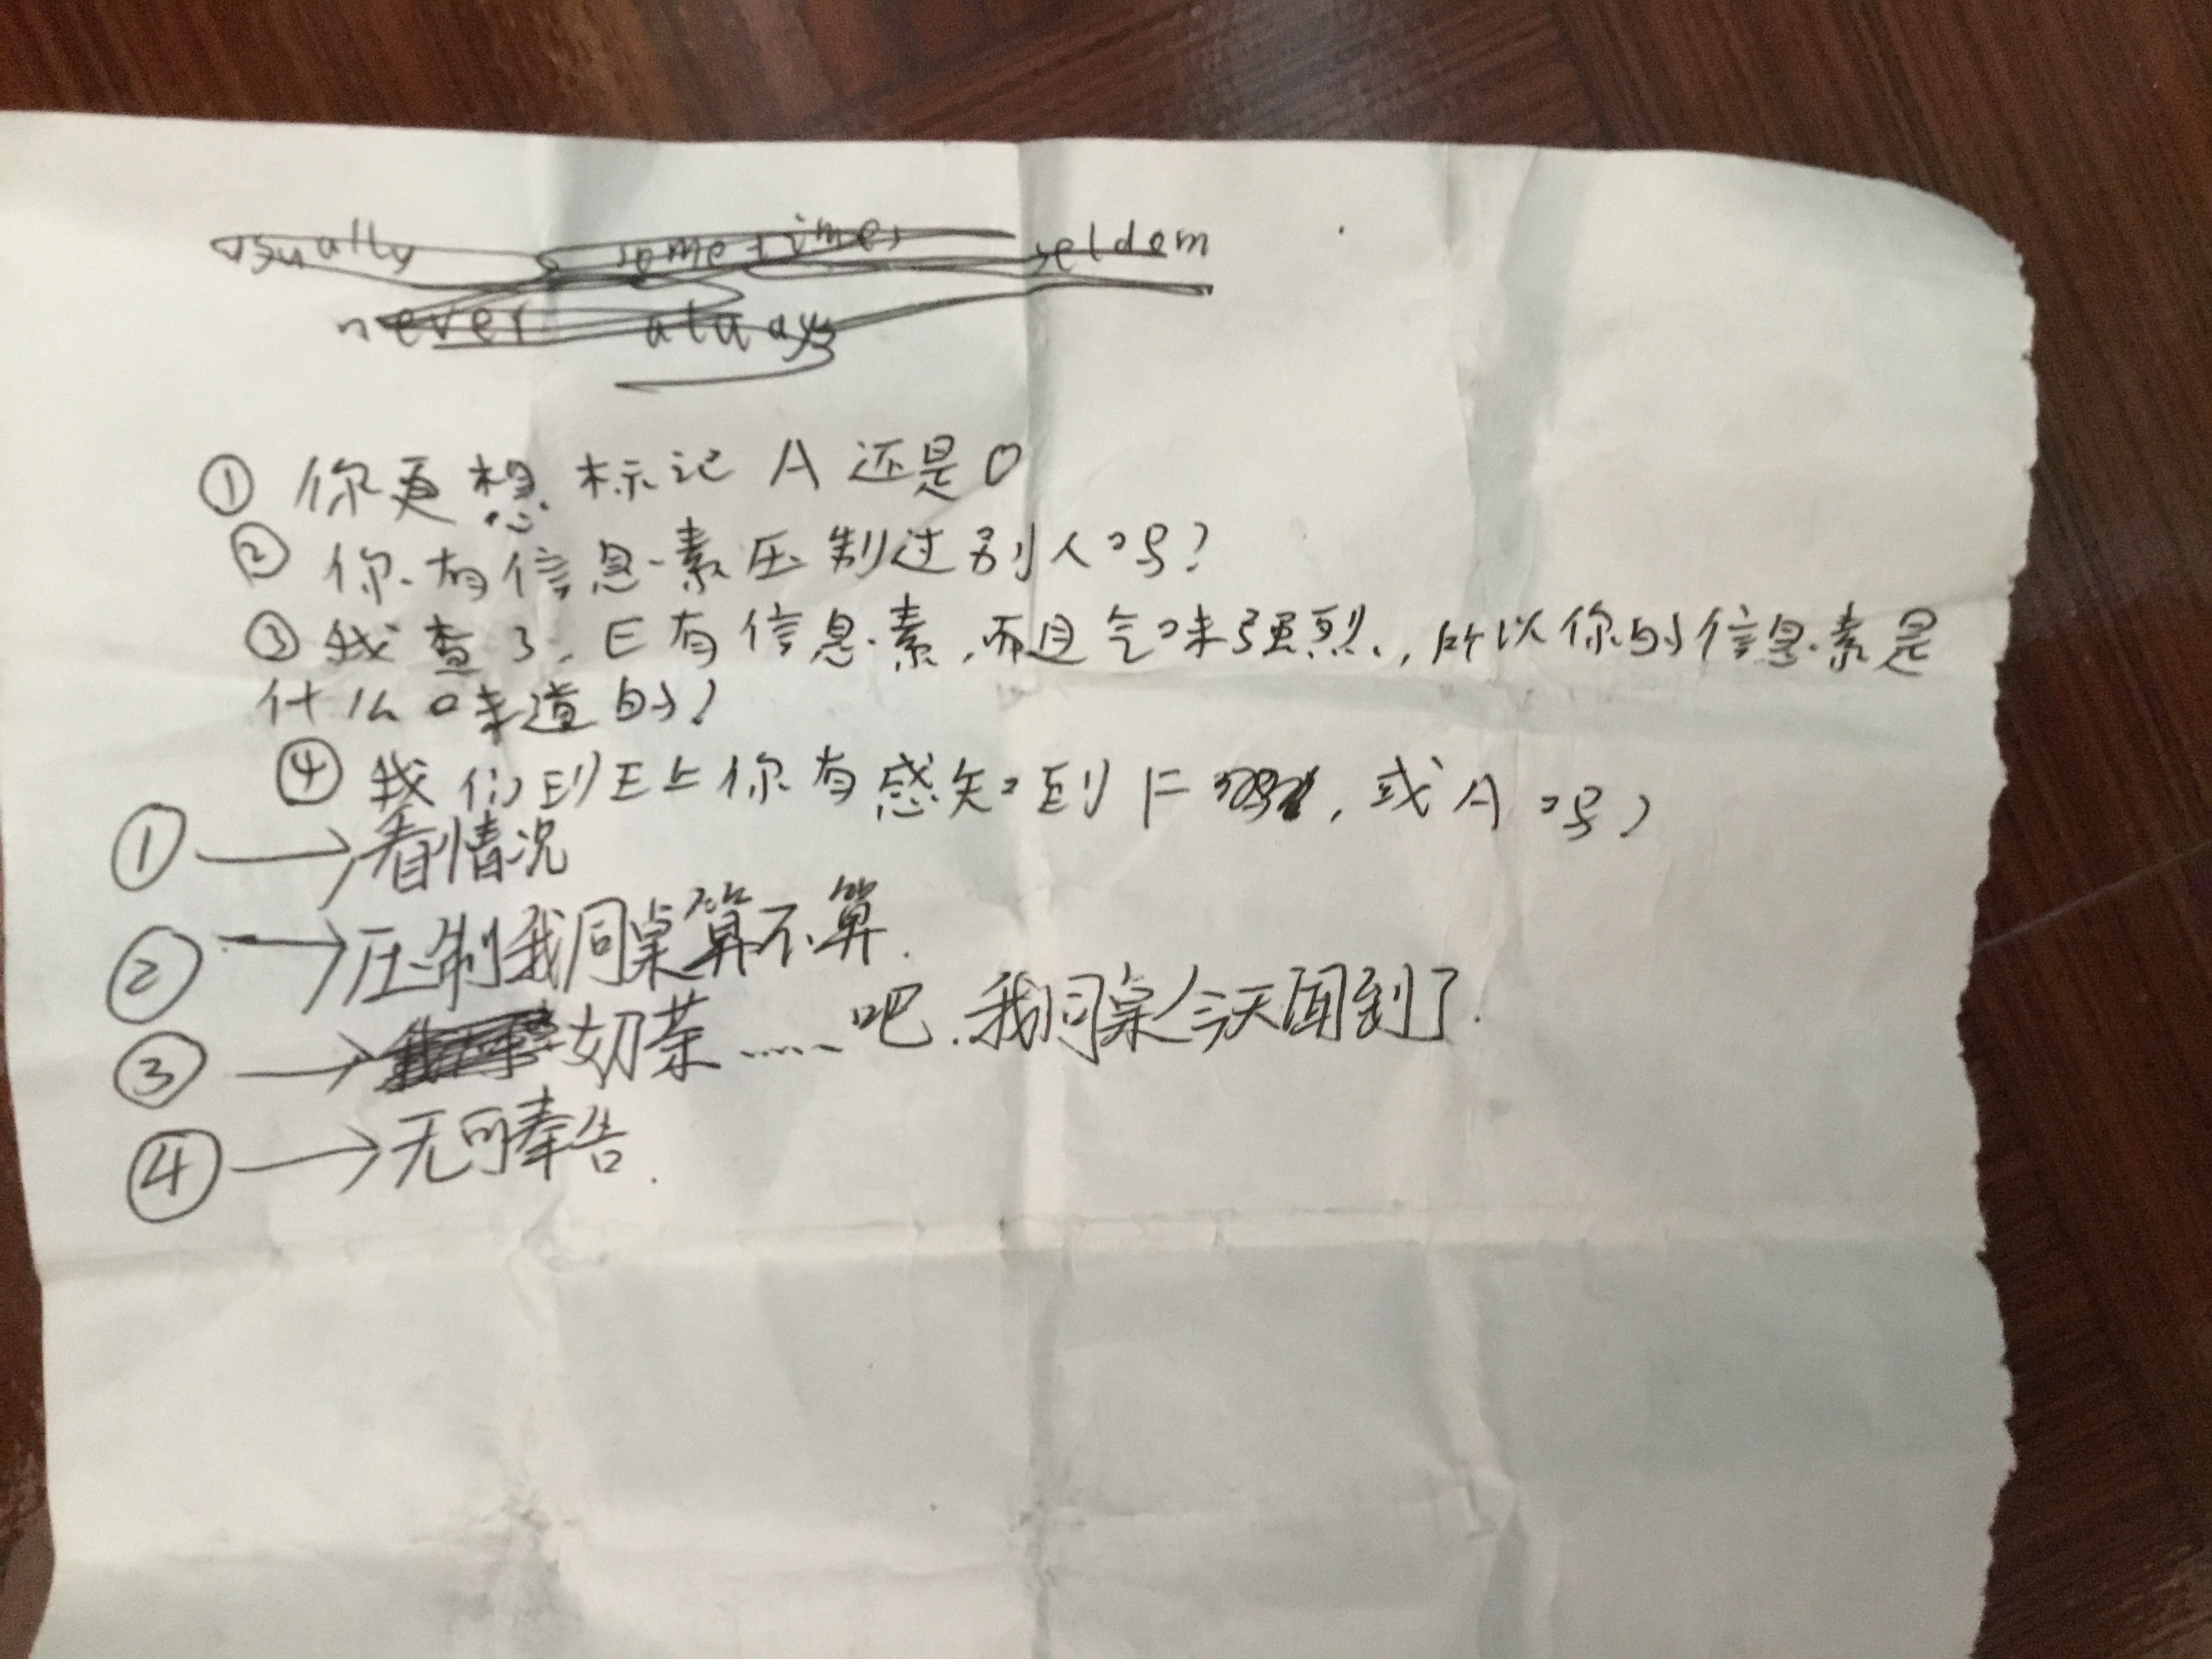 usually sometimes seldom
never always
① 你更想标记 A 还是 O
② 你有信息素压制过别人吗?
③ 我查了, E有信息素,而且气味强烈,所以你的信息素是
什么味道的?
④ 我们到E上你有感知到 , 或 A 吗?
① → 看情况
② → 压制我同桌算不算.
③ → 奶茶......吧.我同桌今天闻到了.
④ → 无可奉告.